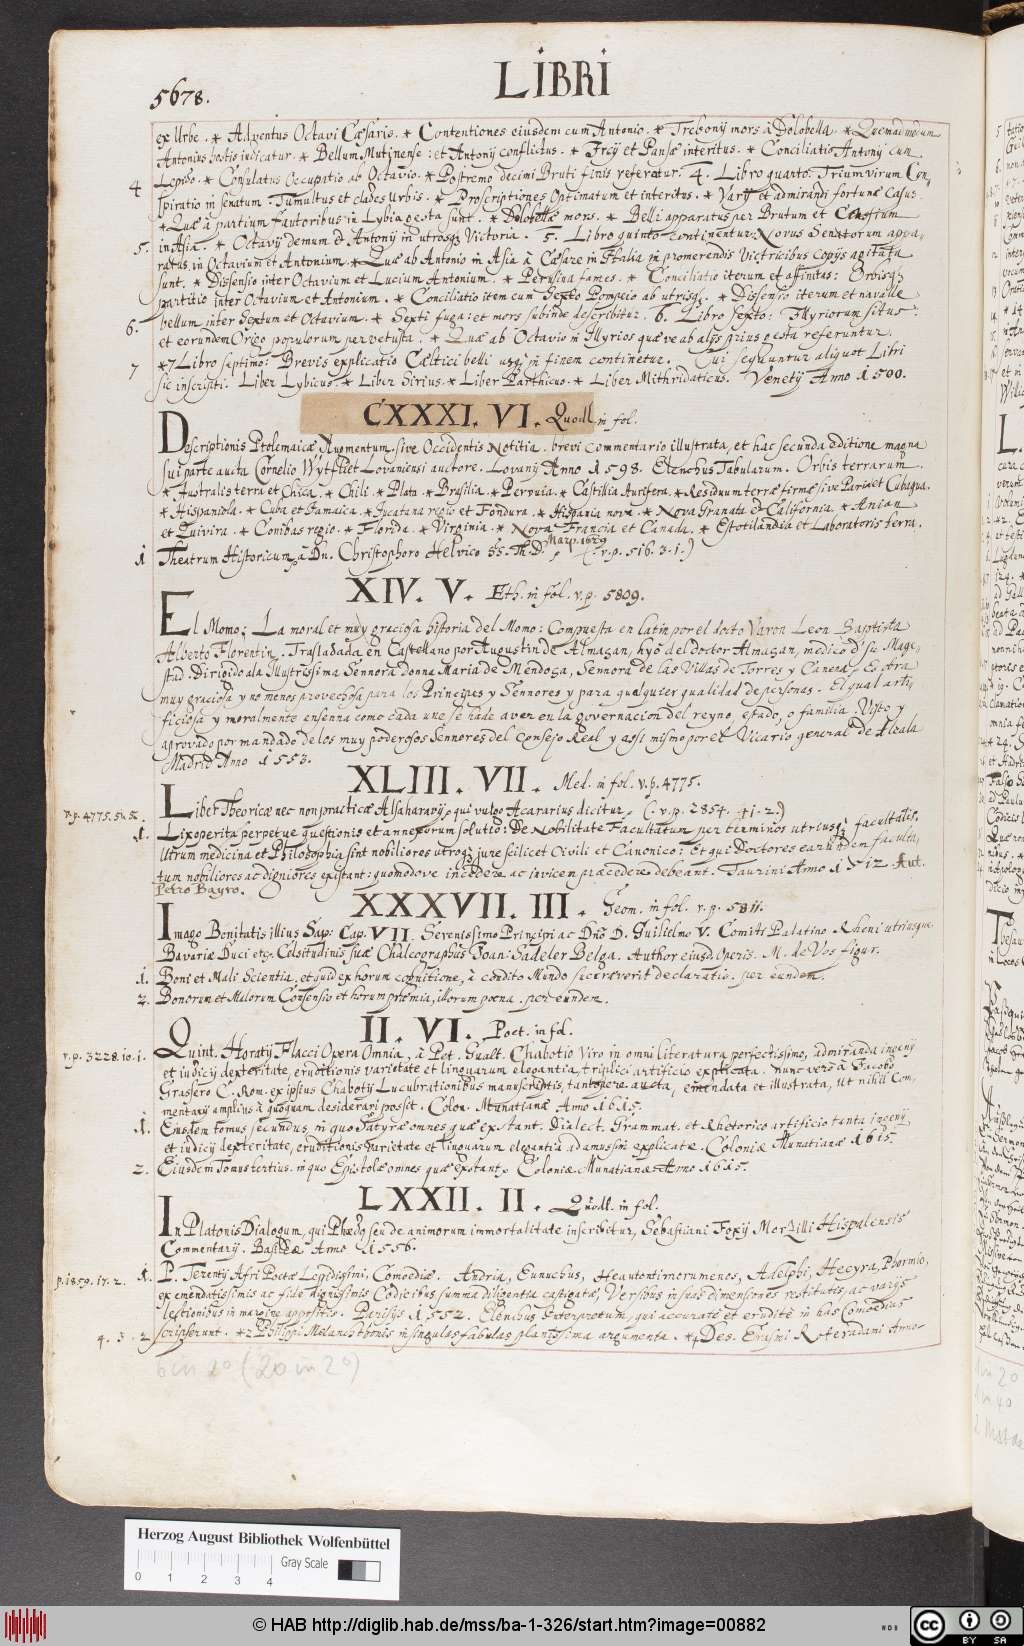 5678.
LIBRI
ex Urbe. * Adventus Octavi Cæsaris. * Contentiones eiusdem cum Antonio. * Trebonij mors à Dolobella. * Quemadmodum
Antonius hostis iudicatur. * Bellum Mutinense: et Antonij conflictus. * Ircij et Pansæ interitus. * Conciliatio Antonij cum
4 Lepido. * Consulatus Occupatio ab Octavio. * Postremo decimi Bruti finis referatur. 4. Libro quarto: Triumvirum Con-
spiratio in senatum. Tumultus et clades Urbis. * Proscriptiones Optimatum et interitus. * Varij et admirandi fortunæ Casus.
* Quæ à partium fautoribus in Lybia gesta sunt. * Dolobellæ mors. * Belli apparatus per Brutum et Cassium
5. in Asia. * Octavij demum et Antonij in utrosq Victoria. 5. Libro quinto continentur: Novus Senatorum appa-
ratus in Octavium et Antonium. * Quæ ab Antonio in Asia à Cæsare in Italia in promerendis Victricibus Copijs agitata
sunt. * Dissensio inter Octavium et Lucium Antonium. * Perusina fames. * Conciliatio iterum et affinitas: Orbisq
partitio inter Octavium et Antonium. * Conciliatio item cum Sexto Pompeio ab utrisq. * Dissensio iterum et navalle
6. bellum inter Sextum et Octavium. * Sexti fuga: et mors subinde describitur. 6. Libro sexto: Illyriorum situs:
et eorundem Origo populorum pervetusta. * Quæ ab Octavio in Illyrios quæve ab alijs prius gesta referuntur.
7 * 7 Libro septimo: Brevis explicatio Cæltici belli usq in finem continetur. Cui sequuntur aliquot Libri
sic inscripti. Liber Lybicus. * Liber Sirius. * Liber Parthicus. * Liber Mithridaticus. Venetij Anno 1500.
CXXXI. VI. Quodl. in fol.
Descriptionis Ptolemaicæ Augmentum. sive Occidentis Notitia. brevi commentario illustrata, et hac secunda editione magna
sui parte aucta Cornelio Wytfliet Lovaniensi auctore. Lovanij Anno 1598. Elenchus Tabularum. Orbis terrarum.
* Australis terra et Chica. * Chili. * Plata. * Brasilia. * Pervuia. * Castillia Aurifera. * Residuum terræ firmæ sive Paria et Cubagua.
* Hispaniola. * Cuba et Jamaica. * Jucatana regio et Fondura. * Hispania nova. * Nova Granata et California. * Anian
et Quivira. * Conibas regio. * Florida. * Virginia. * Nova Francia et Canada. * Estotilandia et Laboratoris terra.
1 Theatrum Historicum, à Dn. Christophoro Helvico SS. Th. D. Marp. 1629 (v. p. 516. 3. 1.)
XIV. V. Eth. in fol. v. p. 5809.
El Momo; La moral et muy graciosa historia del Momo: Compuesta en latin por el docto Varon Leon Baptista
Alberto Florentin. Trasladada en Castellano por Augustin de Almaçan, hyo del doctor Almaçan, medico d' su Mage-
stad. Dirigido a la Illustrissima Sennora donna Maria de Mendoça, Sennora de las Villas de Torres y Canena. Es obra
muy graciosa y no menos provechosa para los Principes y Sennores y para qualquier qualidad de personas. El qual arti-
ficiosa y moralmente ensenna como cada une se hade aver en la governacion del reyno, estado, o familia. Visto y
aprovado por mandado de los muy poderosos Sennores del Consejo Real y assi mismo por el Vicario general de Alcala.
Madrid Anno 1553.
XLIII. VII. Med. in fol. v. p. 4775.
v. p. 4775. Liber Theoricæ nec non practicæ Alsaharavij, qui vulgo Acararius dicitur, (v. p. 2854. 41. 2.)
1. Lixoperita perpetue questionis et annexorum solutio: De Nobilitate Facultatum per terminos utriusq facultatis.
Utrum medicina et Philosophia sint nobiliores utroq jure scilicet Civili et Canonico: Et qui Doctores earundem faculta-
tum nobiliores ac digniores existant: quomodove incedere ac invicem præcedere debeant. Taurini Anno 1512. Aut.
Petro Bayro.
XXXVII. III. Geom. in fol. v. p. 5811.
Imago Bonitatis illius Sap: Cap. VII. Serenissimo Principi ac Dno D. Guilielmo V. Comiti Palatino Rheni utriusque
Bavariæ Duci etc. Celsitudinis suæ Chalcographus Joan: Sadeler Belga. Author eiusd. Operis. M. de Vos figur.
1. Boni et Mali Scientia, et quid ex horum cognitione, à condito Mundo secreverit declaratio. per eundem.
2. Bonorum et Malorum Consensio et horum præmia, illorum poena. per eundem.
II. VI. Poet. in fol.
v. p. 3228. 10. 1. Quint. Horatij Flacci Opera Omnia, à Pet. Gualt. Chabotio Viro in omni literatura perfectissimo, admiranda ingenij
et iudicij dexteritate, eruditionis varietate et linguarum elegantia, triplici artificio explicata. nunc verò à Jacobo
Grassero C. Rom. ex ipsius Chabotij Lucubrationibus manuscriptis, tantopere aucta, emendata et illustrata, ut nihil Com-
mentarij amplius à quoquam desiderari possit. Colon. Munatianæ Anno 1615.
1. Eiusdem tomus secundus, in quo Satyræ omnes quæ extant. Dialect. Grammat. et Rhetorico artificio tanta ingenij
et iudicij dexteritate, eruditionis varietate et linguarum elegantia adamussim explicatæ. Coloniæ Munatianæ 1615.
2. Eiusdem Tomus tertius. in quo Epistolæ omnes quæ extant. Coloniæ Munatianæ Anno 1615.
LXXII. II. Quodl. in fol.
In Platonis Dialogum, qui Phædo seu de animorum immortalitate inscribitur, Sebastiani Foxij Morzilli Hispalensis
Commentarij. Basileæ Anno 1556.
p. 1859. 17. 2. 1. P. Terentij Afri Poetæ Lepidissimi, Comoediæ. Andria, Eunuchus, Heautontimorumenos, Adelphi, Hecyra, Phormio,
ex emendatissimis ac fide dignissimis Codicibus summa diligentia castigatæ, Versibus in suas dimensiones restitutis, ac varijs
lectionibus in margine appositis. Parisijs 1552. Elenchus Interpretum, qui accurate et erudite in has Comoedias
4. 3. 2 scripserunt. * 2 Philippi Melancthonis in singulas fabulas planissima argumenta. * 4 Des. Erasmi Roteradami Anno-
6 in 2° (20 in 2°)
Herzog August Bibliothek Wolfenbüttel
0 1 2 3 4
Gray Scale
© HAB http://diglib.hab.de/mss/ba-1-326/start.htm?image=00882
WDB
cc BY SA